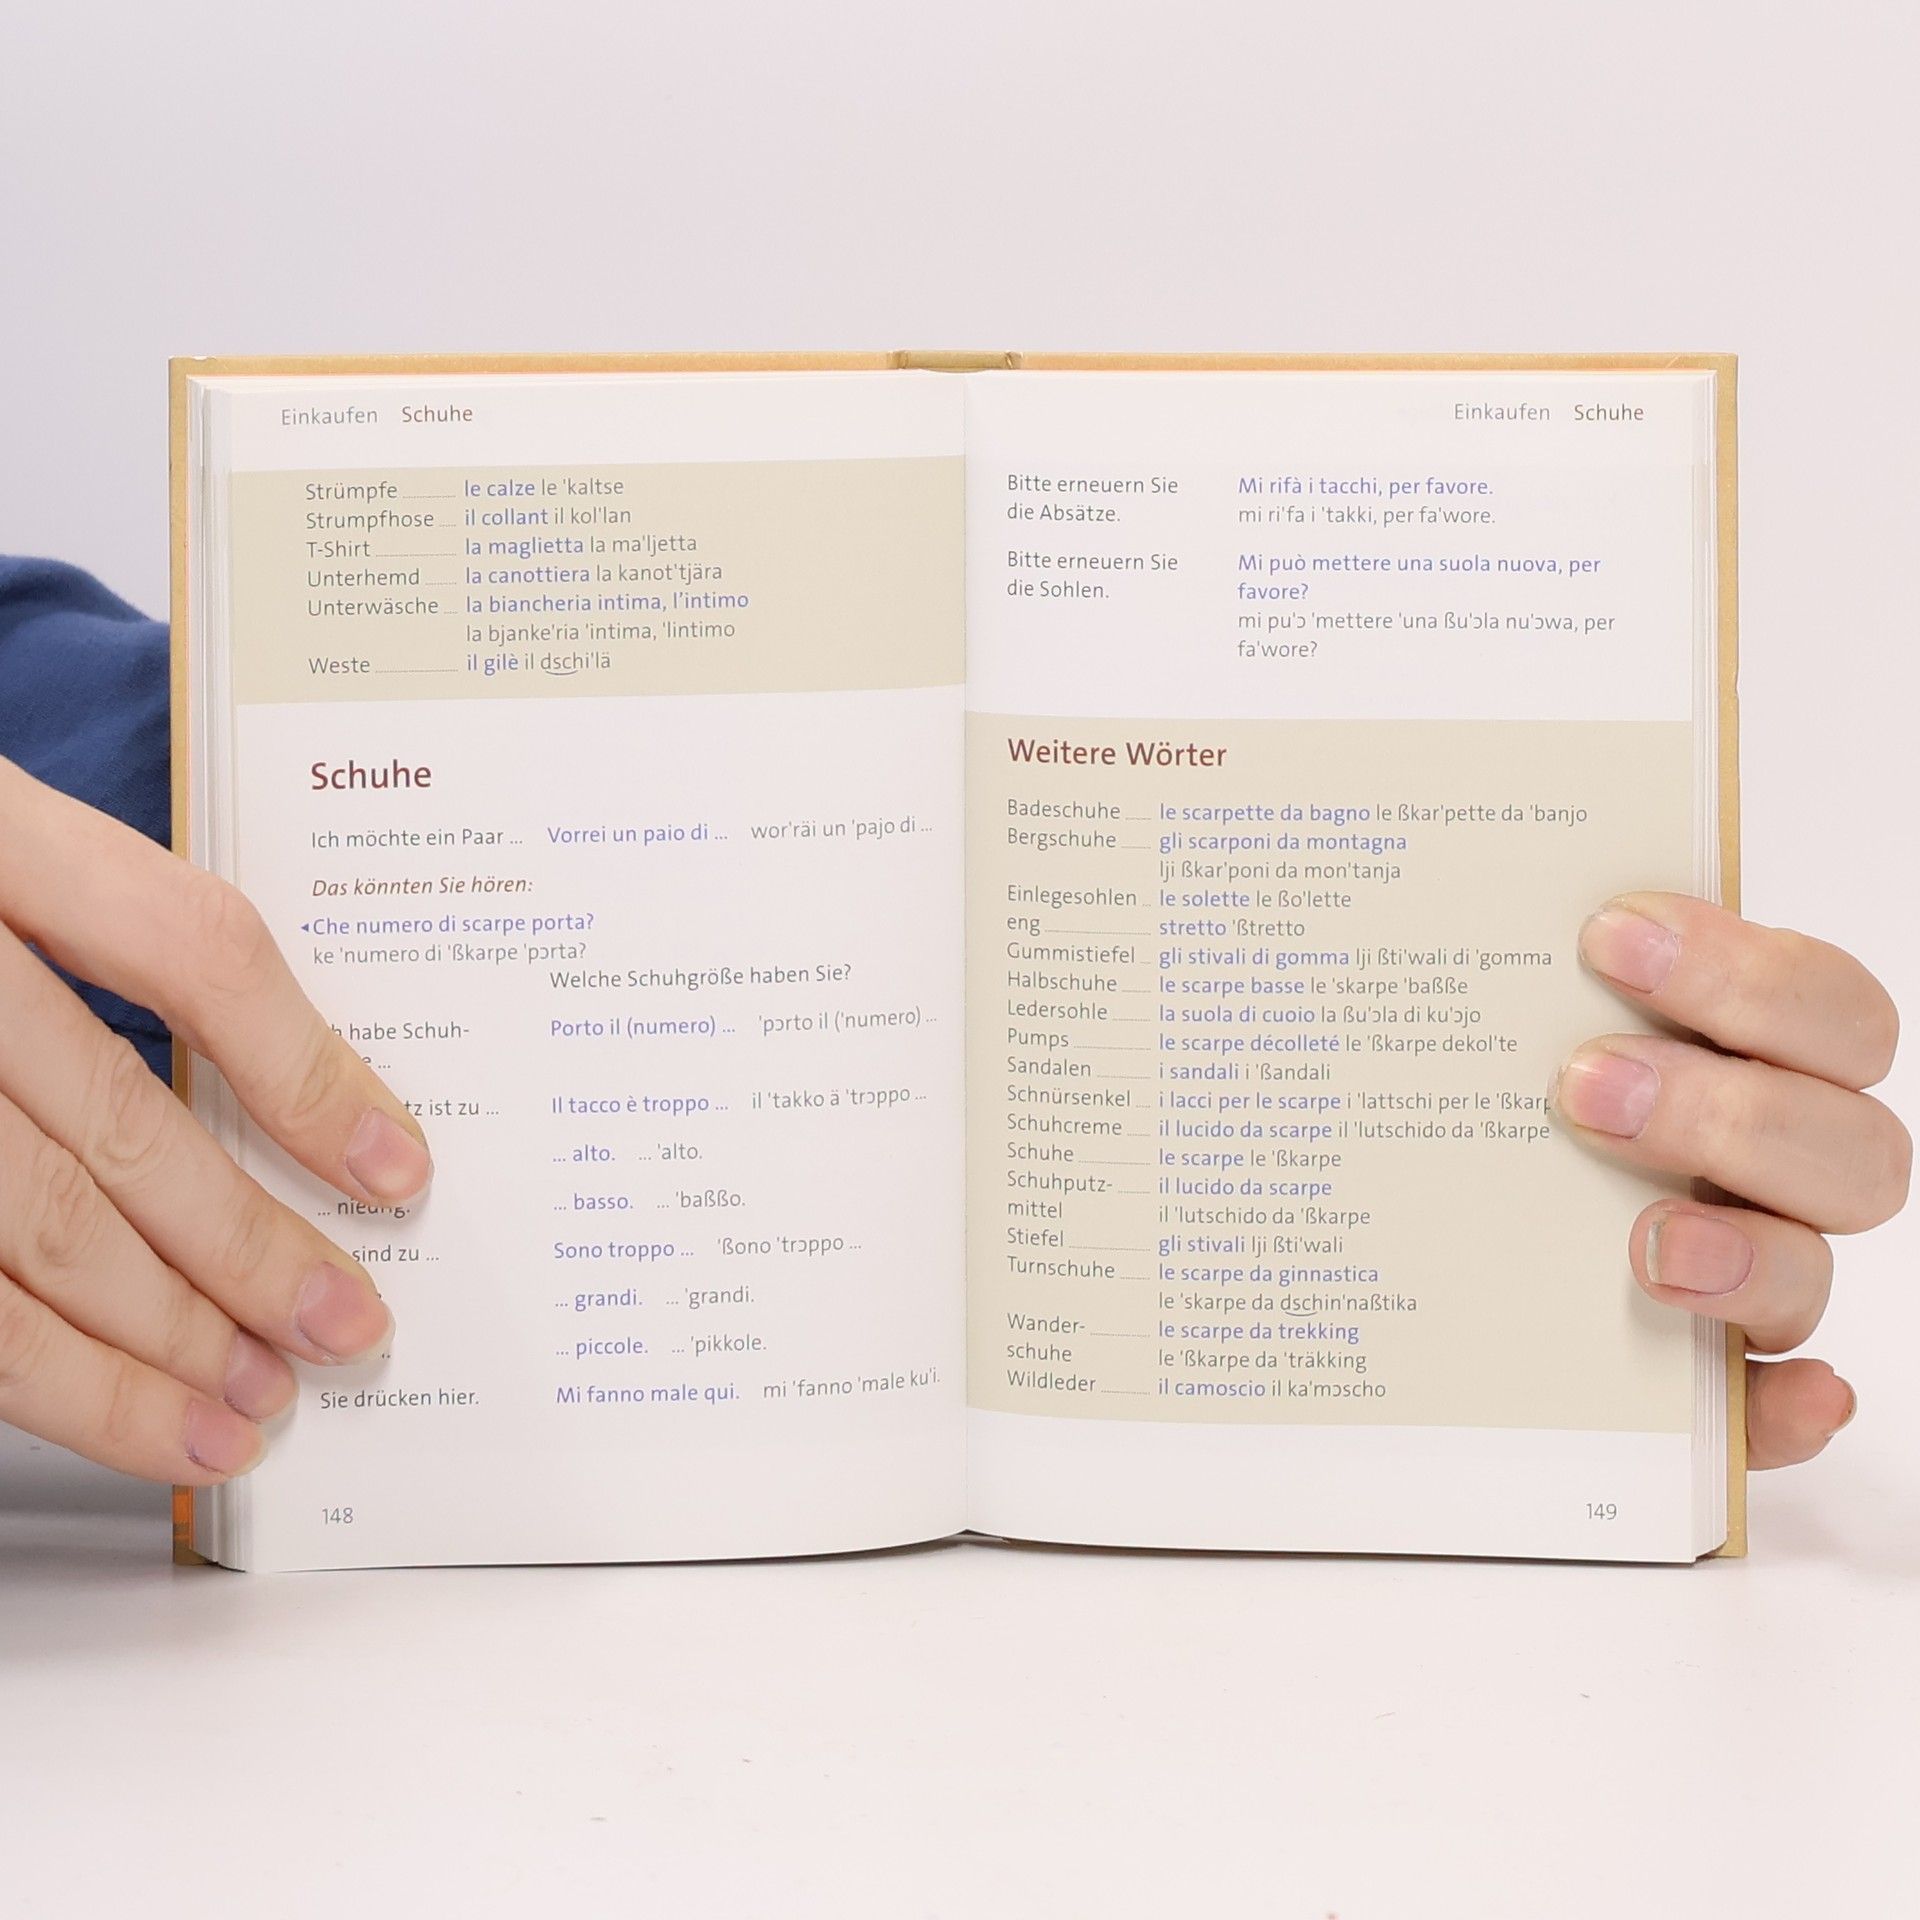 Einkaufen Schuhe
Strümpfe le calze le 'kaltse
Strumpfhose il collant il kol'lan
T-Shirt la maglietta la ma'ljetta
Unterhemd la canottiera la kanot'tjära
Unterwäsche la biancheria intima, l'intimo
la bjanke'ria 'intima, 'lintimo
Weste il gilè il dschi'lä
Schuhe
Ich möchte ein Paar ... Vorrei un paio di ... wor'räi un 'pajo di ...
Das könnten Sie hören:
◂Che numero di scarpe porta?
ke 'numero di 'ßkarpe 'pɔrta?
Welche Schuhgröße haben Sie?
habe Schuh- Porto il (numero) ... 'pɔrto il ('numero) ...
...
ist zu ... Il tacco è troppo ... il 'takko ä 'trɔppo ...
... alto. ... 'alto.
... basso. ... 'baßßo.
sind zu ... Sono troppo ... 'ßono 'trɔppo ...
... grandi. ... 'grandi.
... piccole. ... 'pikkole.
Sie drücken hier. Mi fanno male qui. mi 'fanno 'male ku'i.
148
Einkaufen Schuhe
Bitte erneuern Sie Mi rifà i tacchi, per favore.
die Absätze. mi ri'fa i 'takki, per fa'wore.
Bitte erneuern Sie Mi può mettere una suola nuova, per
die Sohlen. favore?
mi pu'ɔ 'mettere 'una ßu'ɔla nu'ɔwa, per
fa'wore?
Weitere Wörter
Badeschuhe le scarpette da bagno le ßkar'pette da 'banjo
Bergschuhe gli scarponi da montagna
lji ßkar'poni da mon'tanja
Einlegesohlen le solette le ßo'lette
eng stretto 'ßtretto
Gummistiefel gli stivali di gomma lji ßti'wali di 'gomma
Halbschuhe le scarpe basse le 'skarpe 'baßße
Ledersohle la suola di cuoio la ßu'ɔla di ku'ɔjo
Pumps le scarpe décolleté le 'ßkarpe dekol'te
Sandalen i sandali i 'ßandali
Schnürsenkel i lacci per le scarpe i 'lattschi per le
Schuhcreme il lucido da scarpe il 'lutschido da 'ßkarpe
Schuhe le scarpe le 'ßkarpe
Schuhputz- il lucido da scarpe
mittel il 'lutschido da 'ßkarpe
Stiefel gli stivali lji ßti'wali
Turnschuhe le scarpe da ginnastica
le 'skarpe da dschin'naßtika
Wander- le scarpe da trekking
schuhe le 'ßkarpe da 'träkking
Wildleder il camoscio il ka'mɔscho
149